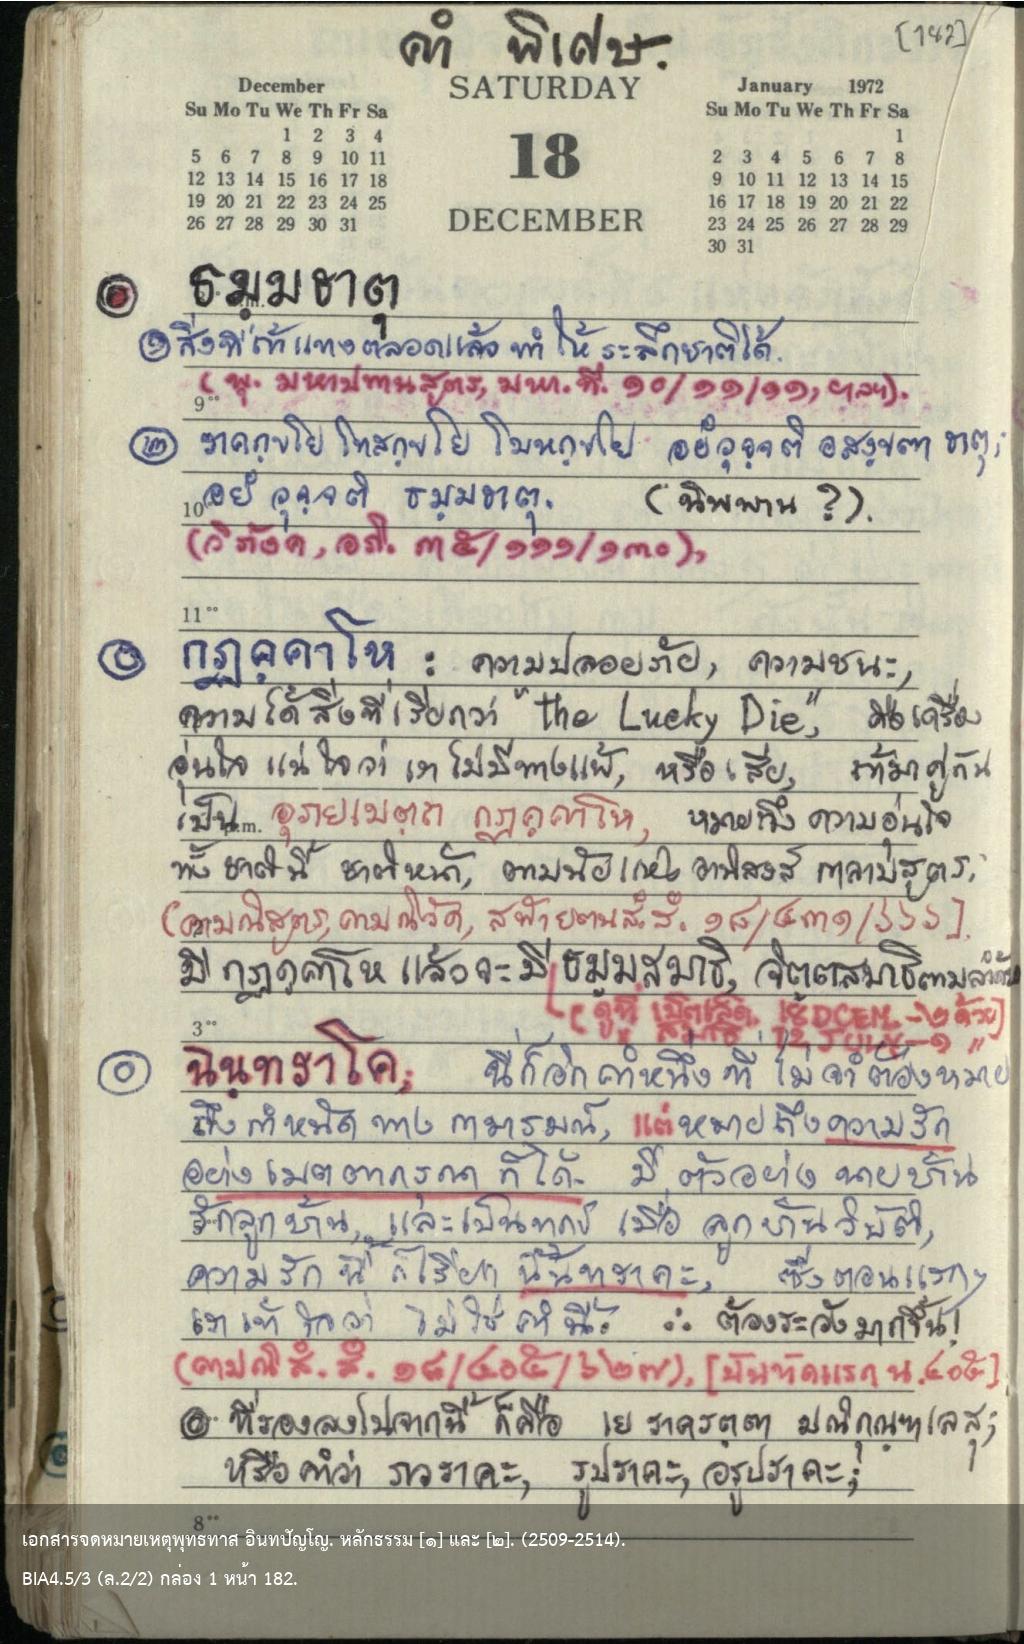 คำ พิเศษ.
[182]
December
Su Mo Tu We Th Fr Sa
1 2 3 4
5 6 7 8 9 10 11
12 13 14 15 16 17 18
19 20 21 22 23 24 25
26 27 28 29 30 31
SATURDAY
18
DECEMBER
January 1972
Su Mo Tu We Th Fr Sa
1
2 3 4 5 6 7 8
9 10 11 12 13 14 15
16 17 18 19 20 21 22
23 24 25 26 27 28 29
30 31
ธมฺมธาตุ
๑ สิ่งที่ถ้าแทงตลอดแล้ว ทำให้ระลึกชาติได้.
(พุ. มหาปทานสูตร, มหา. ที. ๑๐/๑๑/๑๑, ฯลฯ).
9°°
๒ ราคกฺขโย โทสกฺขโย โมหกฺขโย อยํ วุจฺจติ อสงฺขตา ธาตุ;
10 อยํ วุจฺจติ ธมฺมธาตุ. (นิพพาน ?).
(วิภังค์, อภิ. ๓๕/๑๑๑/๑๓๐),
11°°
กฏคฺคาโห : ความปลอดภัย, ความชนะ,
ความได้สิ่งที่เรียกว่า "the Lucky Die", มีเครื่อง
อุ่นใจ แน่ใจว่า เราไม่มีทางแพ้, หรือเสีย, ถ้ามาคู่กัน
เป็น p.m. อุภยเมตฺถ กฏคฺคาโห, หมายถึง ความอุ่นใจ
ทั้งชาตินี้ ชาติหน้า, ตามนัยแห่ง อานิสงส์ กาลามสูตร;
(คามณิสูตร, คามณิวัค, สฬายตนสํ. สํ. ๑๘/๔๓๑/๖๖๖].
มี กฏคฺคาโห แล้วจะมี ธมฺมสมาธิ, จิตฺตสมาธิตามลำดับ
(ดูที่ เบ็ดเตล็ด 18 DCEM. -๒ ด้วย]
3°°
นินฺทราโค; นี่ก็อีกคำหนึ่งที่ ไม่จำต้องหมาย
ถึงกำหนัด ทาง กามารมณ์, แต่หมายถึงความรัก
อย่างเมตตากรุณา ก็ได้. มี ตัวอย่าง นายบ้าน
รักลูกบ้าน, และเป็นทุกข์ เมื่อ ลูกบ้านวิบัติ,
ความรัก นี้ ก็เรียก นินฺทราคะ, ซึ่งตอนแรกๆ
เราเข้าใจว่า ไม่ใช่คำนี้. ∴ ต้องระวังมากขึ้น!
(คามณิ สํ. สํ. ๑๘/๔๐๕/๖๒๗), [บันทัดแรก น. ๔๐๕]
ที่รองลงไปจากนี้ ก็คือ เย ราครตฺตา มณิกุณฺฑเลสุ;
หรือ คำว่า ภวราคะ, รูปราคะ, อรูปราคะ;
8°°
เอกสารจดหมายเหตุพุทธทาส อินทปัญโญ. หลักธรรม [๑] และ [๒]. (2509-2514).
BIA4.5/3 (ล.2/2) กล่อง 1 หน้า 182.